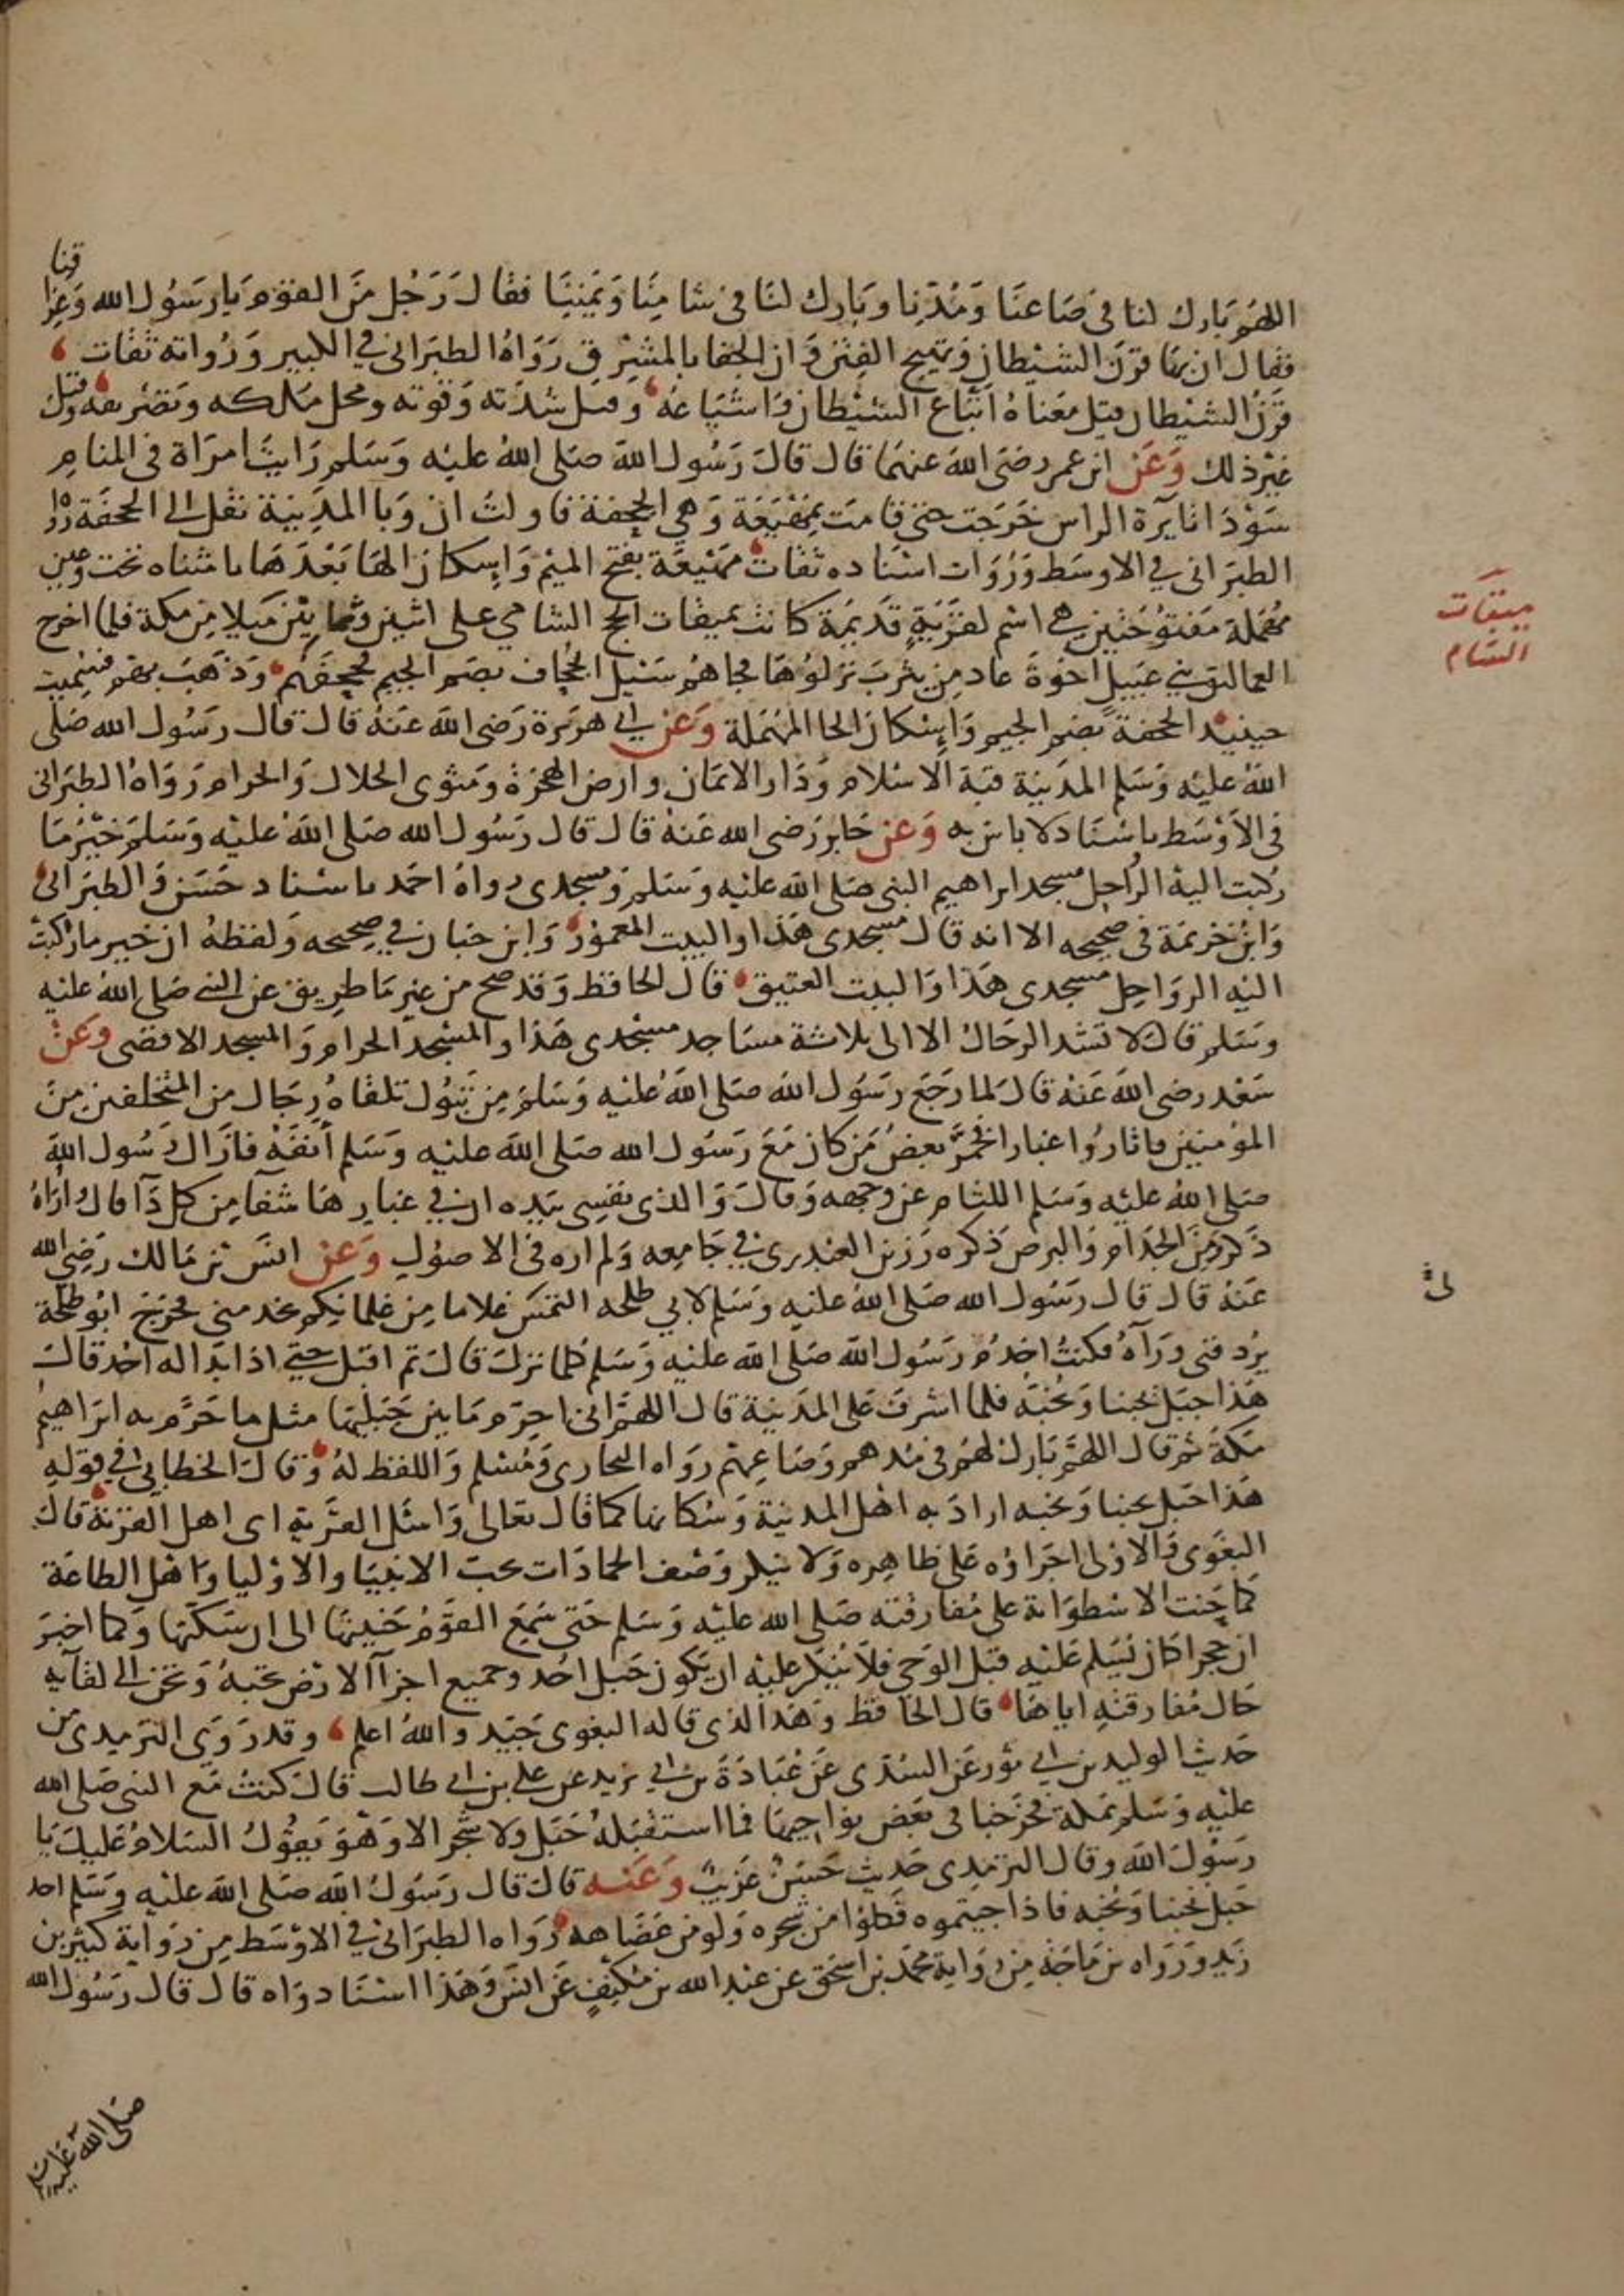 اللهم بارك لنا في صاعنا ومدنا وبارك لنا في شامنا ويمننا فقال رجل من القوم يا رسول الله وعرا
قنا
فقال ان بها قرن الشيطان وتهيج الفتن وان الجفا بالمشرق رواه الطبراني في الكبير ورواته ثقات
قرن الشيطان قيل معناه اتباع الشيطان واشياعه وقيل شدته وقوته ومحل ملكه وتصريفه وقيل
غير ذلك وعن ابن عمر رضي الله عنهما قال قال رسول الله صلى الله عليه وسلم رايت امراة في المنام
سودا ثايرة الراس خرجت حتى قامت بمهيعة وهي الجحفة فاولت ان وبا المدينة نقل الى الجحفة رواه
الطبراني في الاوسط ورواة اسناده ثقات مهيعة بفتح الميم واسكان الها بعدها يا مثناه تحت وعين
مهملة مفتوحتين هي اسم لقرية قديمة كانت بميقات الحج الشامي على اثنين وثمانين ميلا من مكة فلما اخرج
العماليق بني عبيل اخوة عاد من يثرب نزلوها فجاهم سيل الجحاف بضم الجيم فجحفهم وذهب بهم فسميت
حينيذ الجحفة بضم الجيم واسكان الحا المهملة وعن ابي هريرة رضي الله عنه قال قال رسول الله صلى
الله عليه وسلم المدينة قبة الاسلام ودار الايمان وارض الهجرة ومثوى الحلال والحرام رواه الطبراني
في الاوسط باسناد لا باس به وعن جابر رضي الله عنه قال قال رسول الله صلى الله عليه وسلم خير ما
ركبت اليه الرواحل مسجد ابراهيم النبي صلى الله عليه وسلم ومسجدي رواه احمد باسناد حسن والطبراني
وابن خزيمة في صحيحه الا انه قال مسجدي هذا والبيت المعمور وابن حبان في صحيحه ولفظه ان خير ما ركبت
اليه الرواحل مسجدي هذا والبيت العتيق قال الحافظ وقد صح من غير ما طريق عن النبي صلى الله عليه
وسلم قال لا تشد الرحال الا الى ثلاثة مساجد مسجدي هذا والمسجد الحرام والمسجد الاقصى وعن
سعد رضي الله عنه قال لما رجع رسول الله صلى الله عليه وسلم من تبوك تلقاه رجال من المتخلفين من
المؤمنين فاثاروا غبارا فخمر بعض من كان مع رسول الله صلى الله عليه وسلم أنفه فازال رسول الله
صلى الله عليه وسلم اللثام عن وجهه وقال والذي نفسي بيده ان في غبارها شفآ من كل دآ قال اراه
ذكر ومن الجذام والبرص ذكره رزين العبدري في جامعه ولم اره في الاصول وعن انس بن مالك رضي الله
عنه قال قال رسول الله صلى الله عليه وسلم لابي طلحه التمس غلاما من غلمانكم يخدمني فخرج ابو طلحة
يردفني ورآه فكنت اخدم رسول الله صلى الله عليه وسلم كلما نزل قال ثم اقبل حتى اذا بدا له احد قال
هذا جبل يحبنا ونحبه فلما اشرف على المدينة قال اللهم اني احرم ما بين جبليها مثل ما حرم به ابراهيم
مكة ثم قال اللهم بارك لهم في مدهم وصاعهم رواه البخاري ومسلم واللفظ له وقال الخطابي في قوله
هذا جبل يحبنا ونحبه اراد به اهل المدينة وسكانها كما قال تعالى واسئل القرية اي اهل القرية قال
البغوي والاولى اجراؤه على ظاهره ولا ينكر وصف الجمادات بحب الانبيا والاوليا واهل الطاعة
كما حنت الاسطوانة على مفارقته صلى الله عليه وسلم حتى سمع القوم حنينها الى ان سكنها وكما اخبر
ان حجرا كان يسلم عليه قبل الوحي فلا ينكر عليه ان يكون جبل احد وجميع اجزآ الارض تحبه وتحن الى لقآيه
حال مفارقته اياها قال الحافظ وهذا الذي قاله البغوي جيد والله اعلم وقد روى الترميدي من
حديث الوليد بن ابي ثور عن السدي عن عبادة بن ابي يزيد عن علي بن ابي طالب قال كنت مع النبي صلى الله
عليه وسلم بمكة فخرجنا في بعض نواحيها فما استقبله جبل ولا شجر الا وهو يقول السلام عليك يا
رسول الله وقال الترمذي حديث حسن غريب وعنه قال قال رسول الله صلى الله عليه وسلم احد
جبل يحبنا ونحبه فاذا جيتموه فكلوا من شجره ولو من عضاهه رواه الطبراني في الاوسط من رواية كثير بن
زيد ورواه بن ماجة من رواية محمد بن اسحق عن عبد الله بن مكنف عن انس وهذا اسناد واه قال قال رسول الله
صلى الله عليه
ميقات
الشام